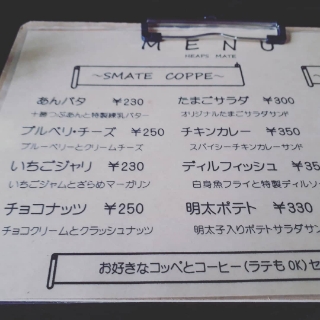 MENU
NEAPS MATE
〜SMATE COPPE〜
あんバタ ¥230
十勝つぶあんと特製練乳バター
ブルベリ・チーズ ¥250
ブルーベリーとクリームチーズ
いちごジャリ ¥230
いちごジャムとざらめマーガリン
チョコナッツ ¥250
チョコクリームとクラッシュナッツ
たまごサラダ ¥300
オリジナルたまごサラダサンド
チキンカレー ¥350
スパイシーチキンカレーサンド
ディルフィッシュ ¥35
白身魚フライと特製ディルソ
明太ポテト ¥330
明太子入りポテトサラダサン
お好きなコッペとコーヒー(ラテもOK)セ